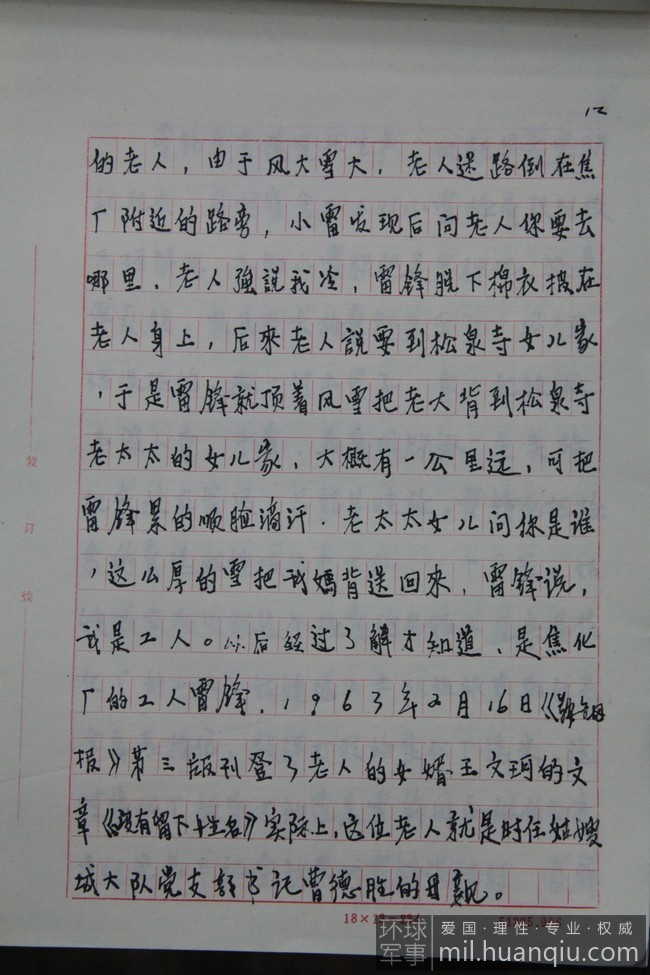 12
的老人，由于风大雪大，老人迷路倒在焦
厂附近的路旁，小雷发现后问老人你要去
哪里，老人強説我冷，雷锋脱下棉衣披在
老人身上，后來老人説要到松泉寺女儿家
，于是雷锋就顶着风雪把老大背到松泉寺
老太太的女儿家，大概有一公里远，可把
雷锋累的顺脸滴汗．老太太女儿问你是谁
，这么厚的雪把我媽背送回來，雷锋说，
我是工人。以后经过了解才知道，是焦化
厂的工人雷锋．1963年2月16日《
报》第三版刊登了老人的女婿王文珂的文
章《没有留下姓名》实际上，这位老人就是时任姑嫂
城大队党支部书记曹德胜的母親。
装
订
线
18×18=324
环球军事
爱国·理性·专业·权威
mil.huanqiu.com